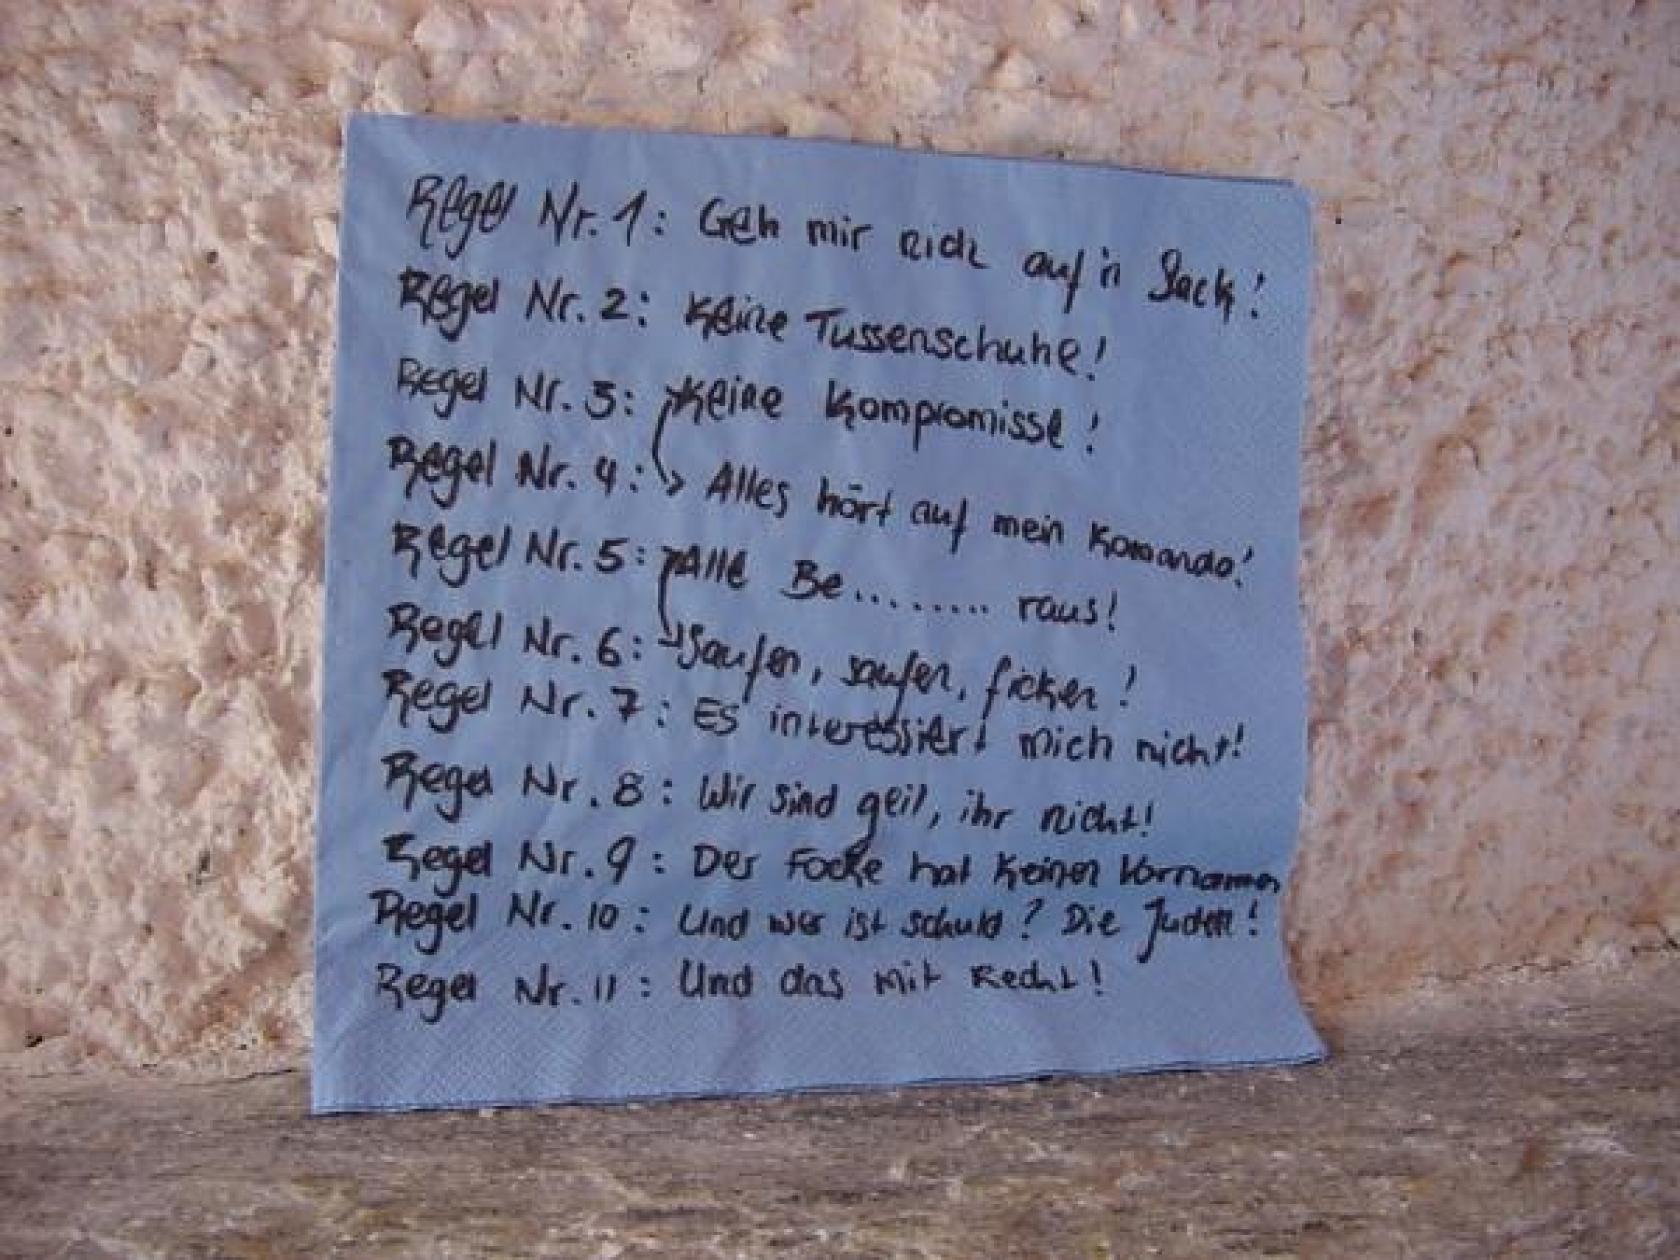 Regel Nr. 1: Geh mir nich auf'n Sack!
Regel Nr. 2: Keine Tussenschuhe!
Regel Nr. 3: Keine Kompromisse!
Regel Nr. 4: Alles hört auf mein Komando!
Regel Nr. 5: Alle Be......... raus!
Regel Nr. 6: Saufen, saufen, ficken!
Regel Nr. 7: Es interessiert mich nicht!
Regel Nr. 8: Wir sind geil, ihr nicht!
Regel Nr. 9: Der Focke hat keinen Vornamen
Regel Nr. 10: Und wer ist schuld? Die Juden!
Regel Nr. 11: Und das mit Recht!